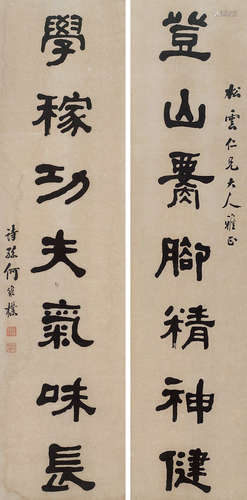 登山腰腳精神健
松雲仁兄大人雅正
學稼功夫氣味長
詩孫何維樸